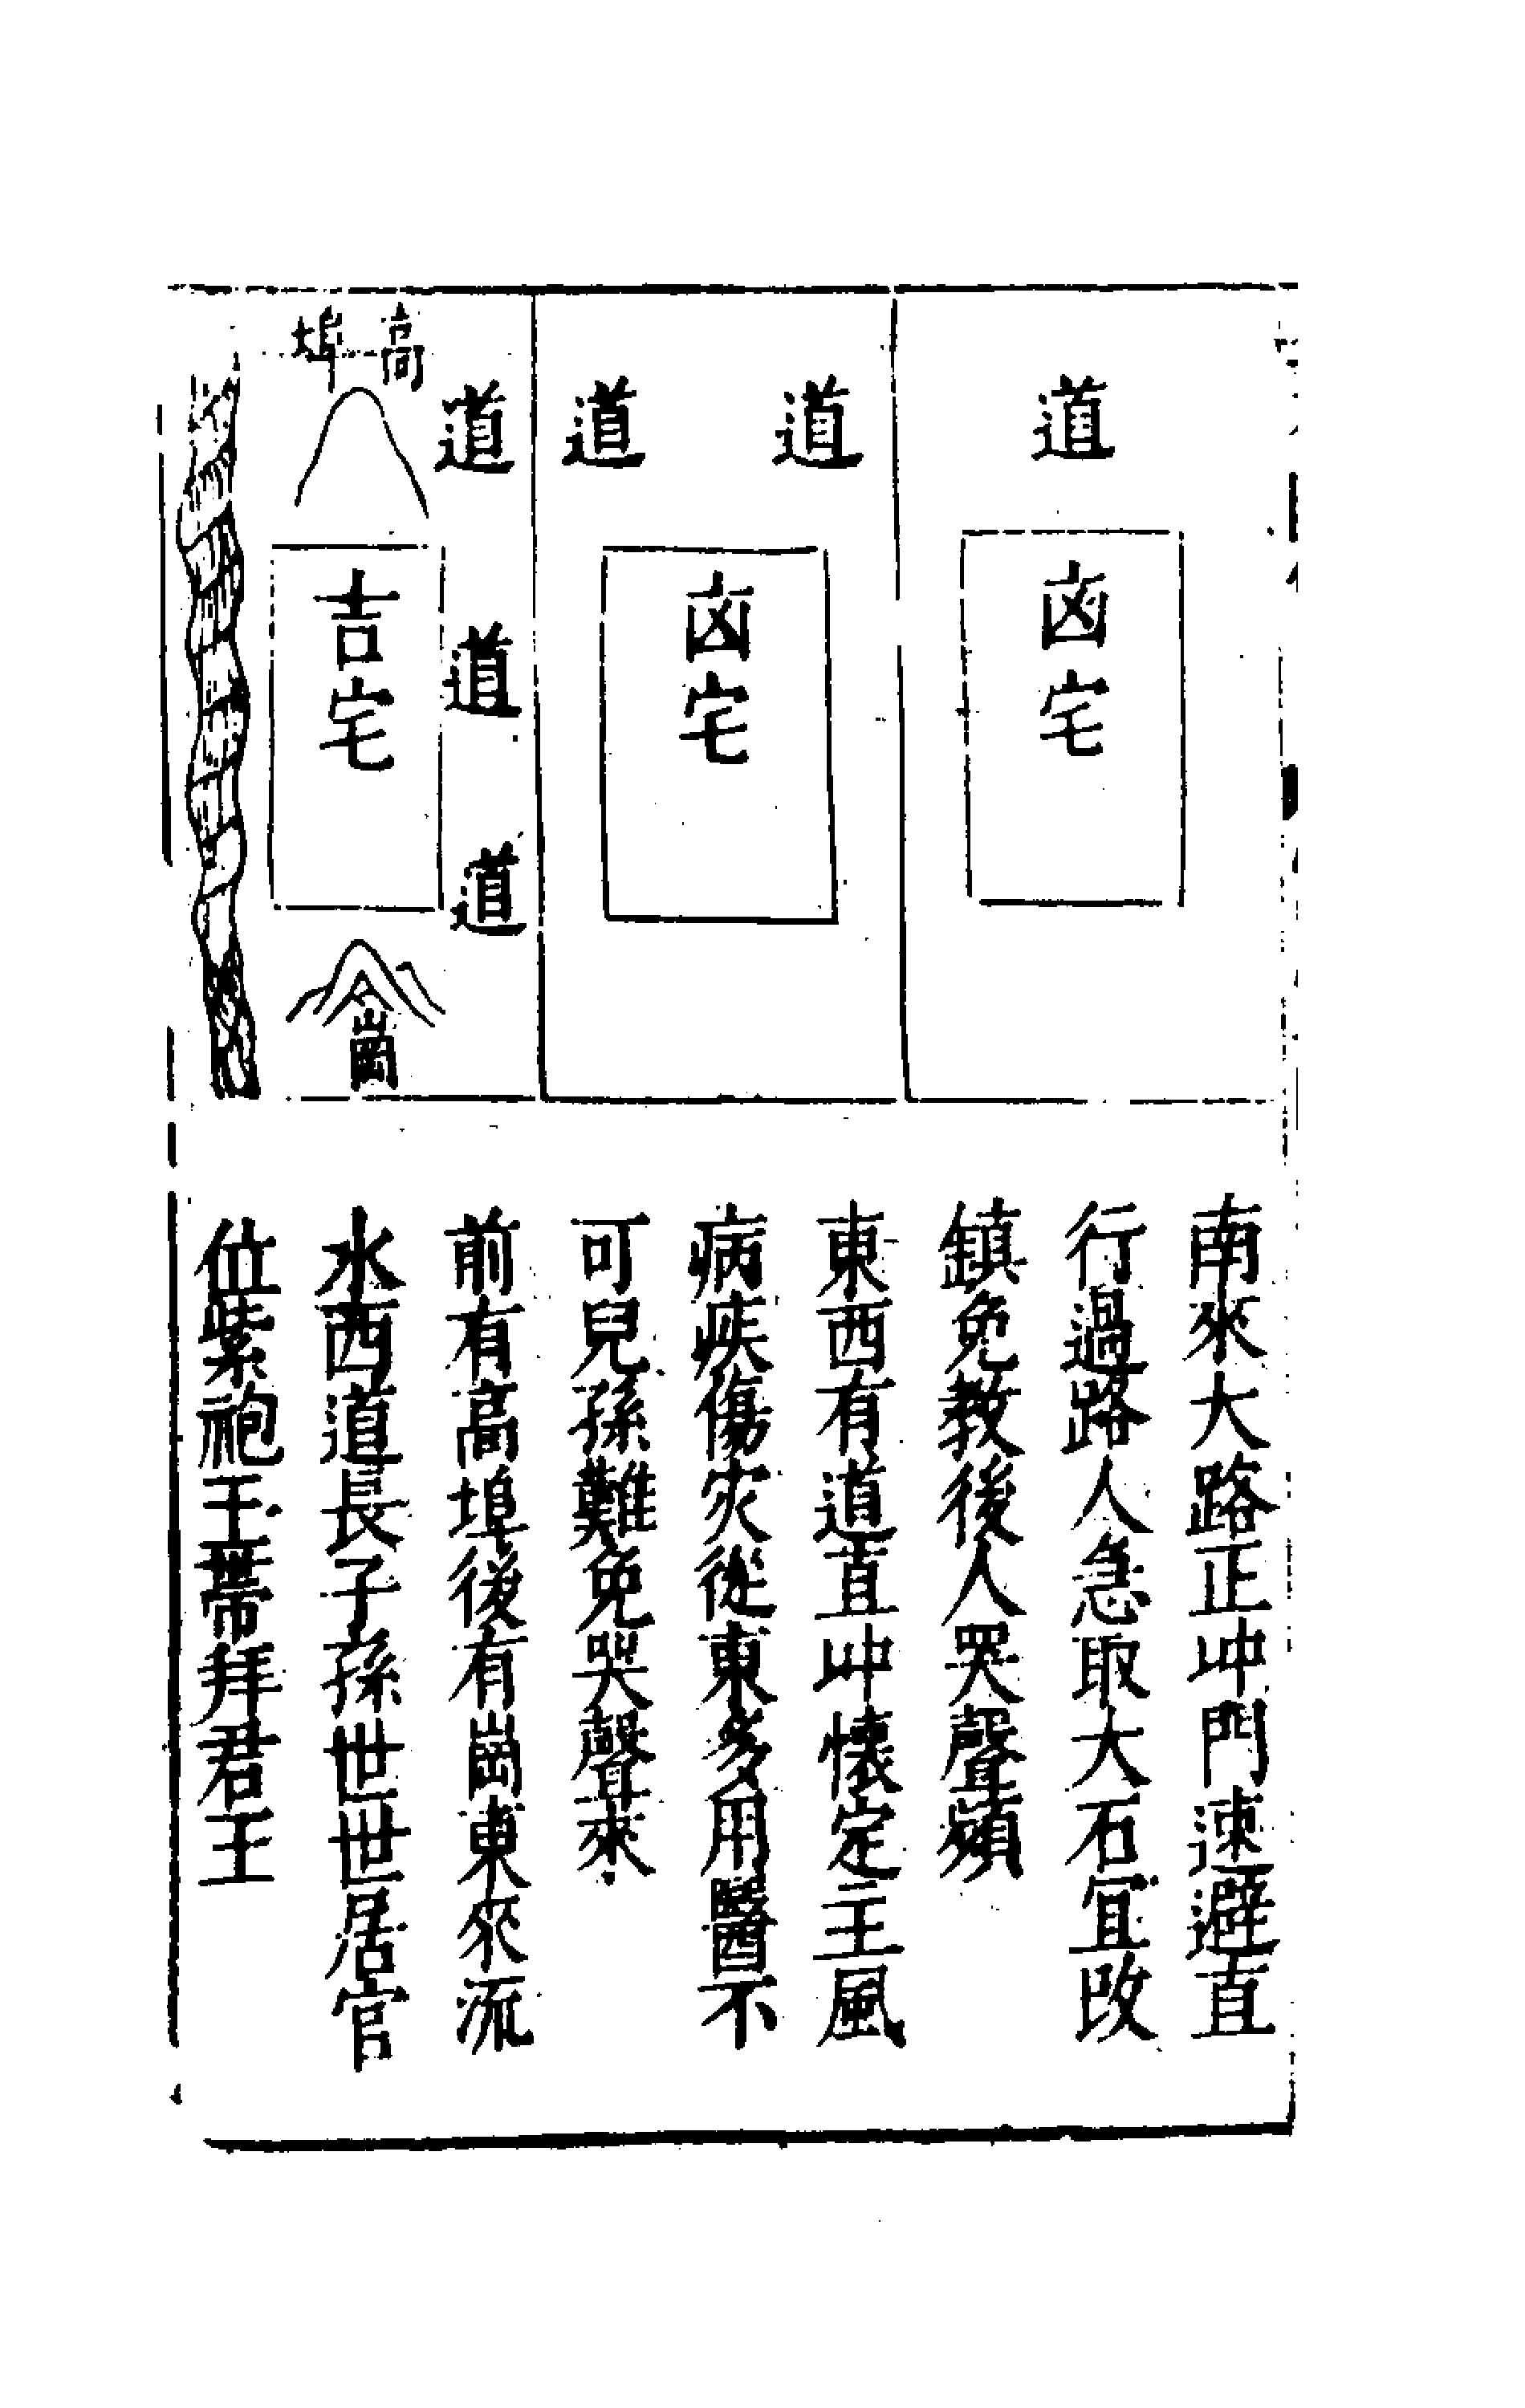 道
凶宅
道
道
凶宅
高埠
道
道
道
吉宅
崗
南來大路正冲門速避直
行過路人急取大石宜改
鎮免教後人哭聲頻
東西有道直冲懷定主風
病疾傷灾從東多用醫不
可兒孫難免哭聲來
前有高埠後有崗東來流
水西道長子孫世世居官
位紫袍玉帶拜君王